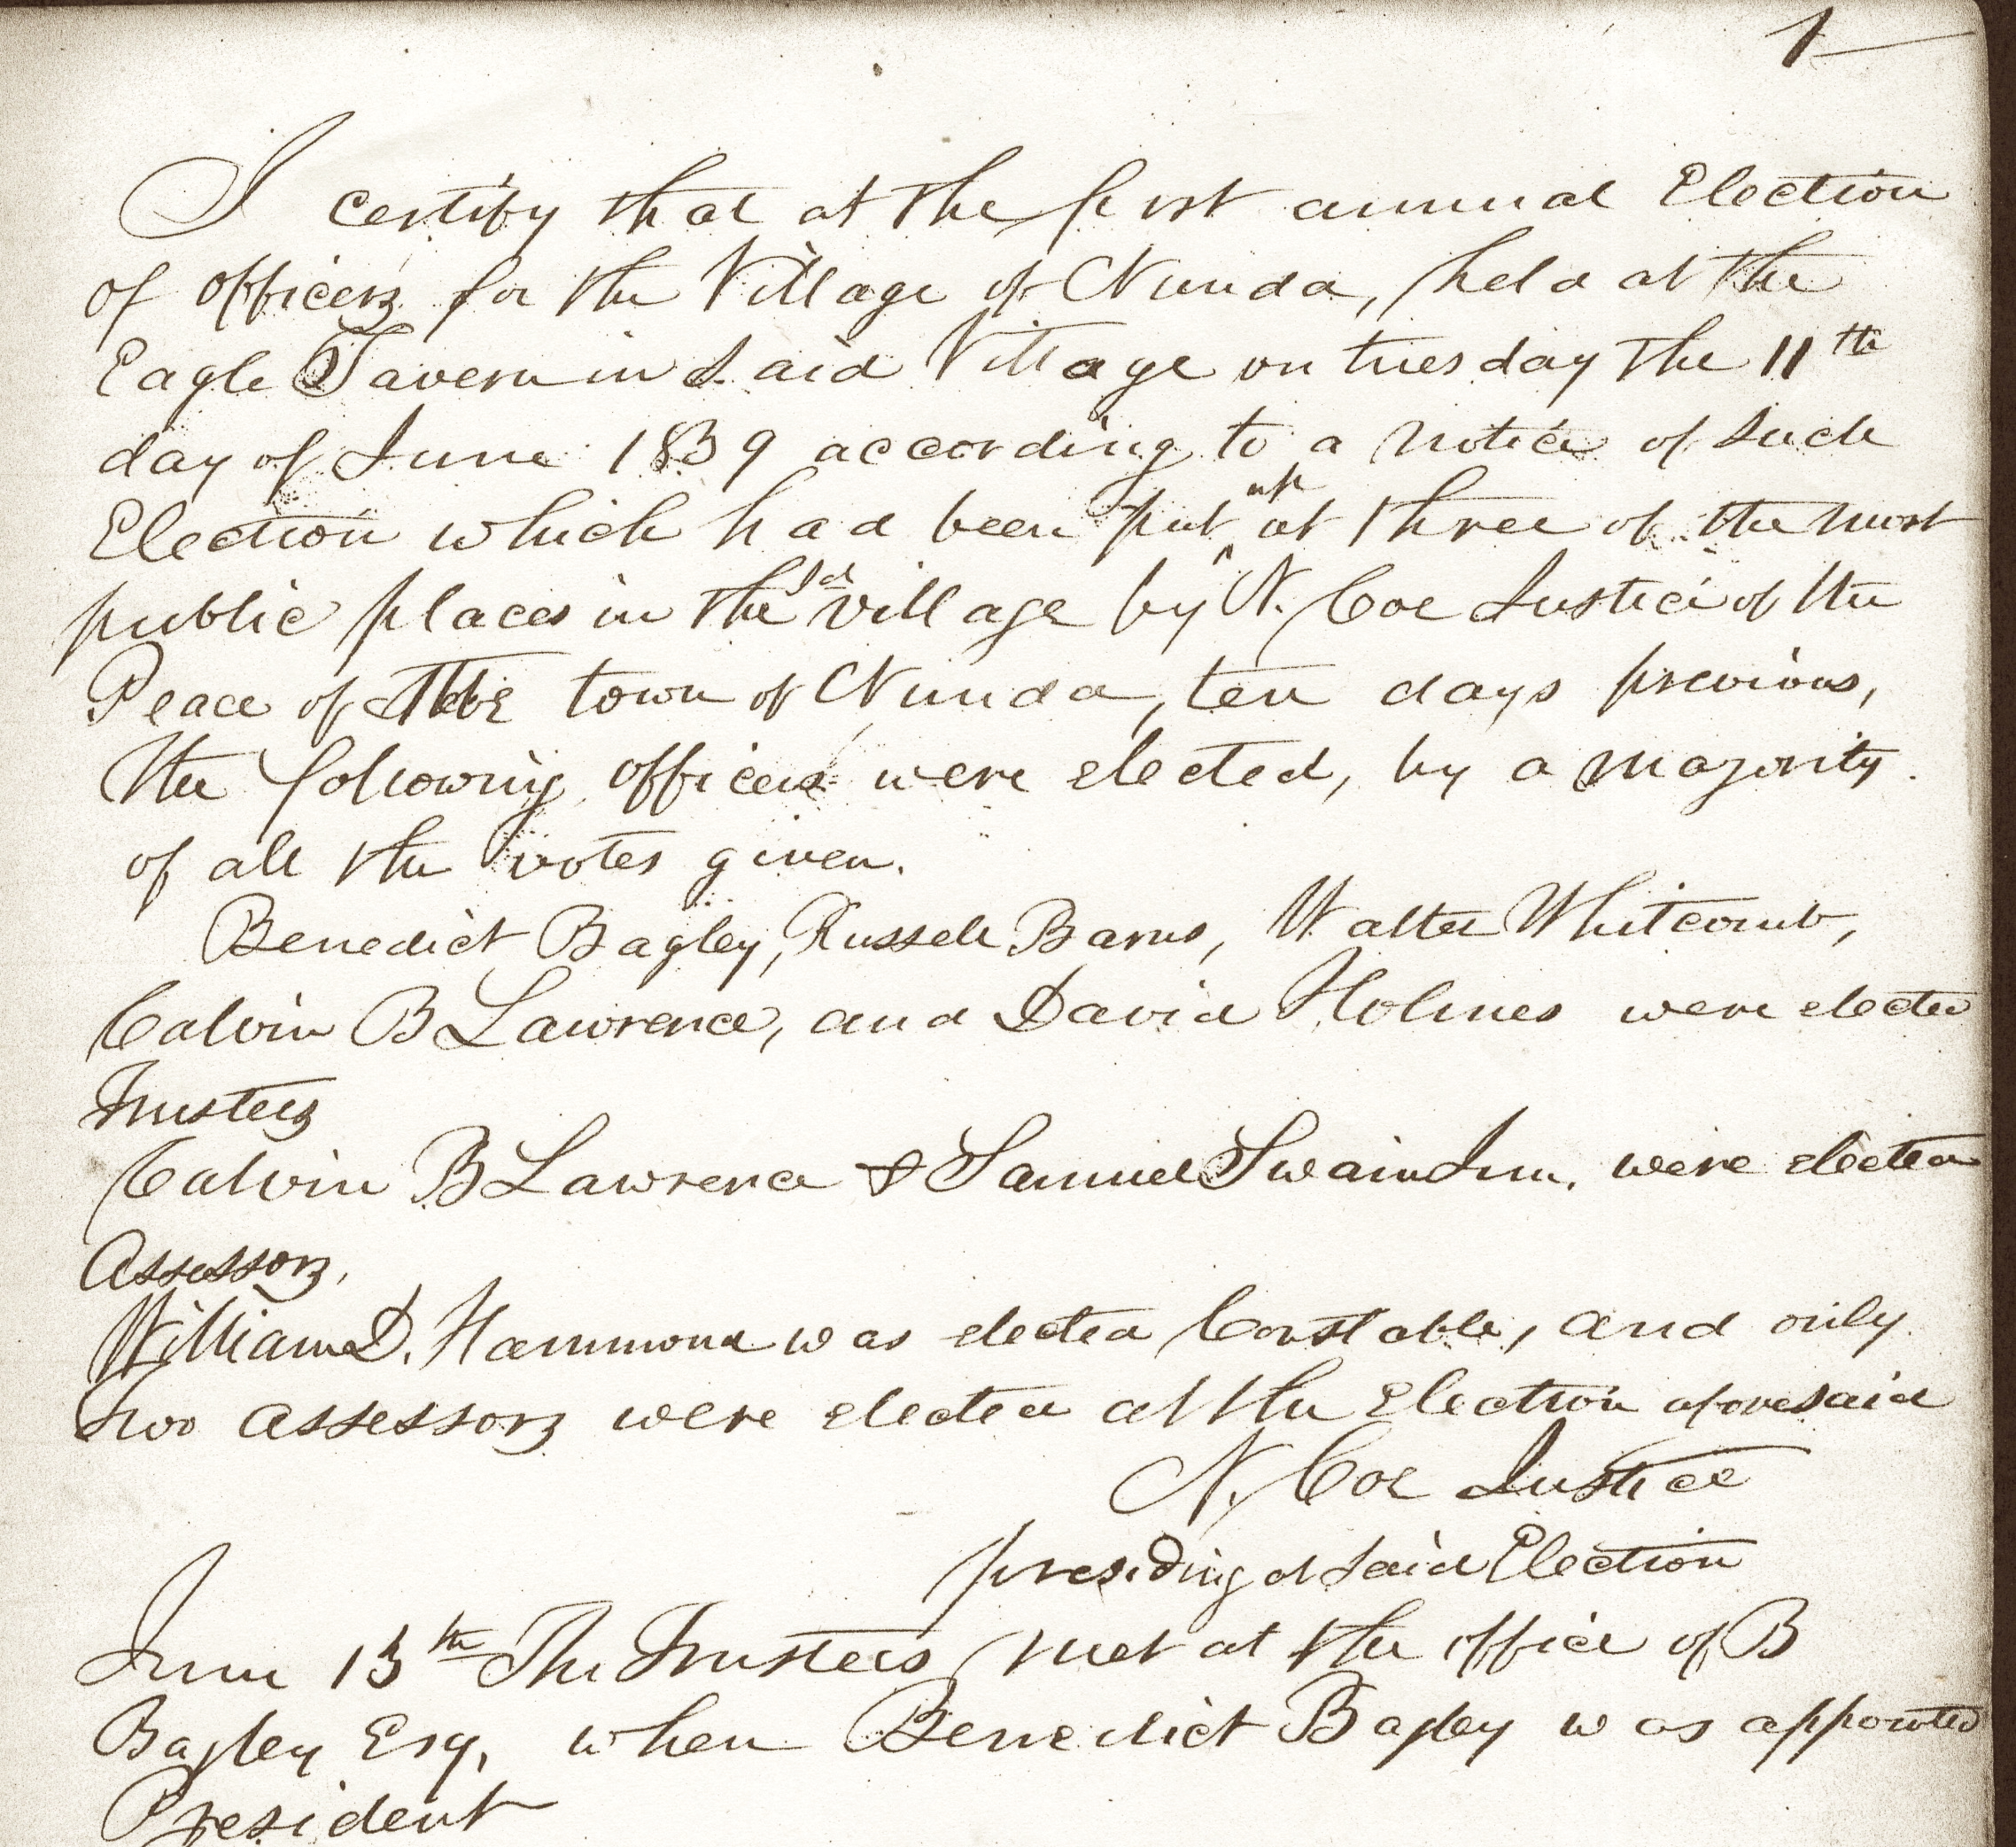 1
I certify that at the first annual Election
of officers for the Village of Nunda, held at the
Eagle Tavern in Said Village on tuesday the 11th
day of June 1839 according to a notice of Such
Election which had been put up at three of the most
public places in the sd village by N. Coe Justice of the
Peace of the town of Nunda, ten days previous,
the following officers were elected, by a majority
of all the votes given.
Benedict Bagley, Russell Barns, Walter Whitcomb,
Calvin B Lawrence, and David Holmes were elected
Trustees
Calvin B Lawrence & Samuel Swain Jun. were elected
Assessors,
William D. Hammond was elected Constable, and only
two assessors were elected at the Election aforesaid
N. Coe Justice
presiding at said Election
June 13th The Trustees met at the office of B
Bagley Esq, when Benedict Bagley was appointed
President